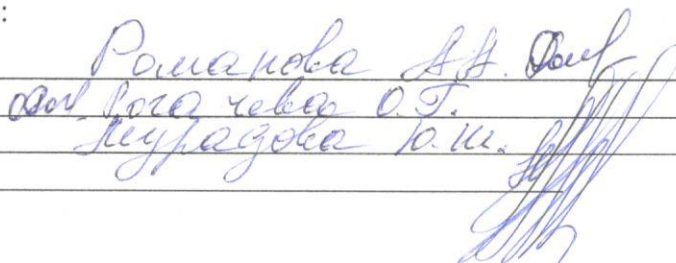 :
Романова А.А.
Рогачева О.Г.
Мурадова Ю.Ш.